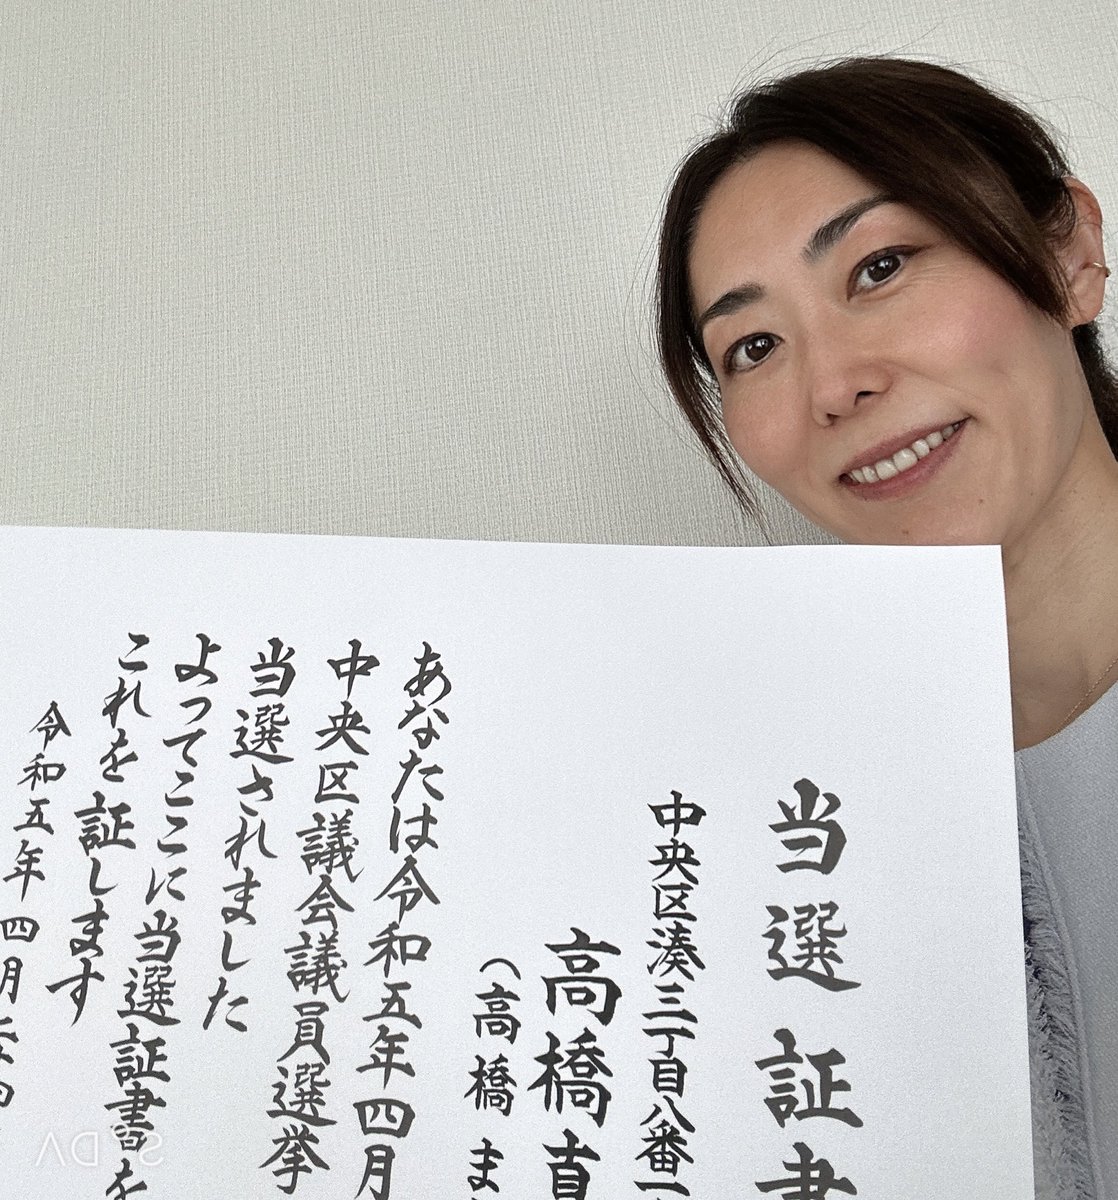 当選証書
中央区湊三丁目八番一
高橋
（高橋 ま
あなたは令和五年四月
中央区議会議員選挙
当選されました
よってここに当選証書を
これを証します
令和五年四月